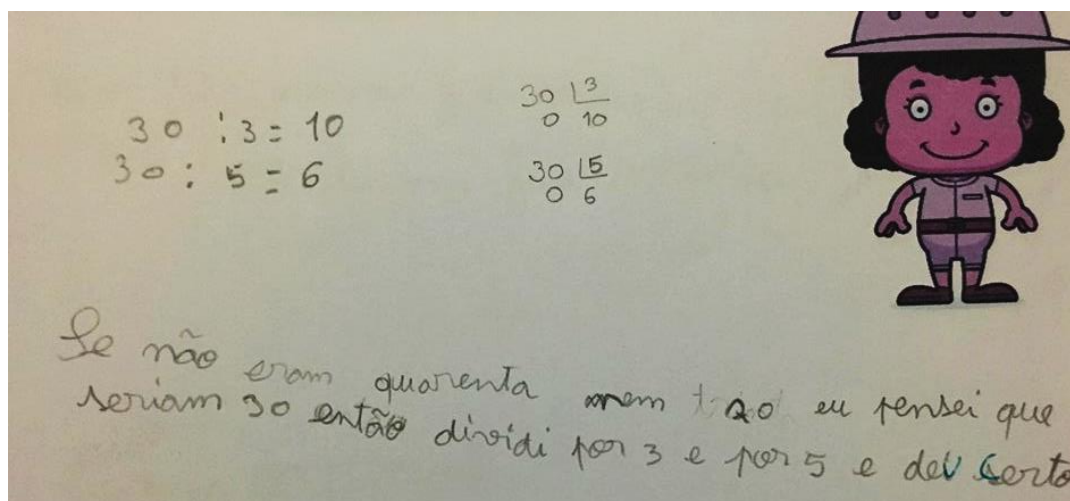 30 : 3 = 10
30 : 5 = 6
30 3
0 10
30 5
0 6
Se não eram quarenta nem 20 eu pensei que
seriam 30 então dividi por 3 e por 5 e deu certo